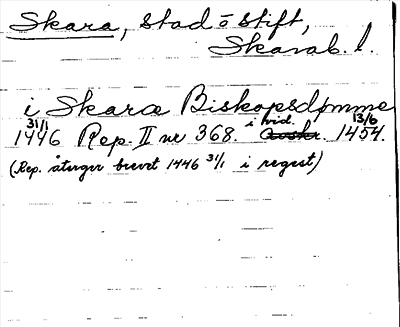 Skara, stad o stift,
Skarab. l.
i Skaræ Biskopsdømme
31/1 1446 Rep. II nr 368. i vid. 13/6 1454.
(Rep. återger brevet 1446 31/1 i regest)